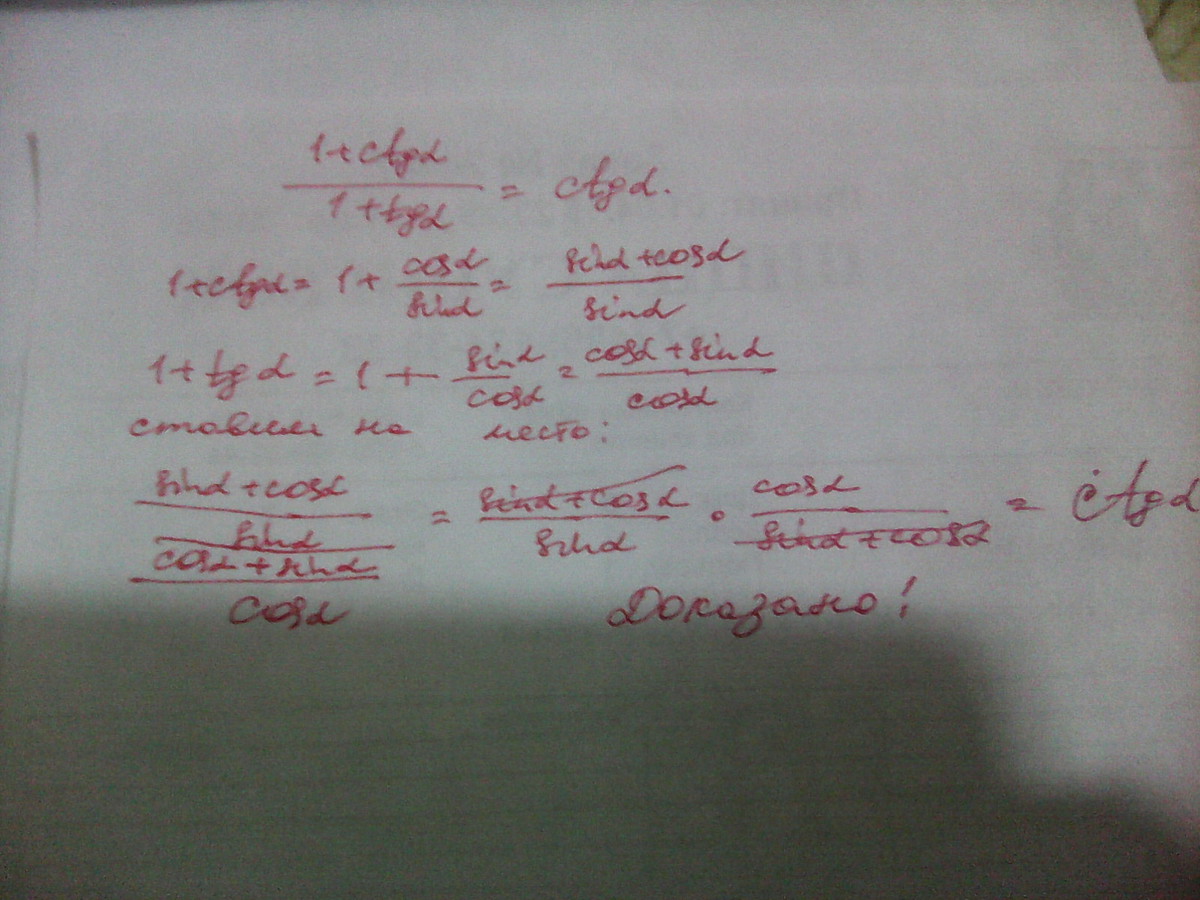 1+ctgα / 1+tgα = ctgα.
1+ctgα = 1 + cosα/sinα = sinα+cosα/sinα
1+tgα = 1 + sinα/cosα = cosα+sinα/cosα
ставим на место:
sinα+cosα/sinα / cosα+sinα/cosα = sinα+cosα/sinα · cosα/sinα+cosα = ctgα
Доказано!